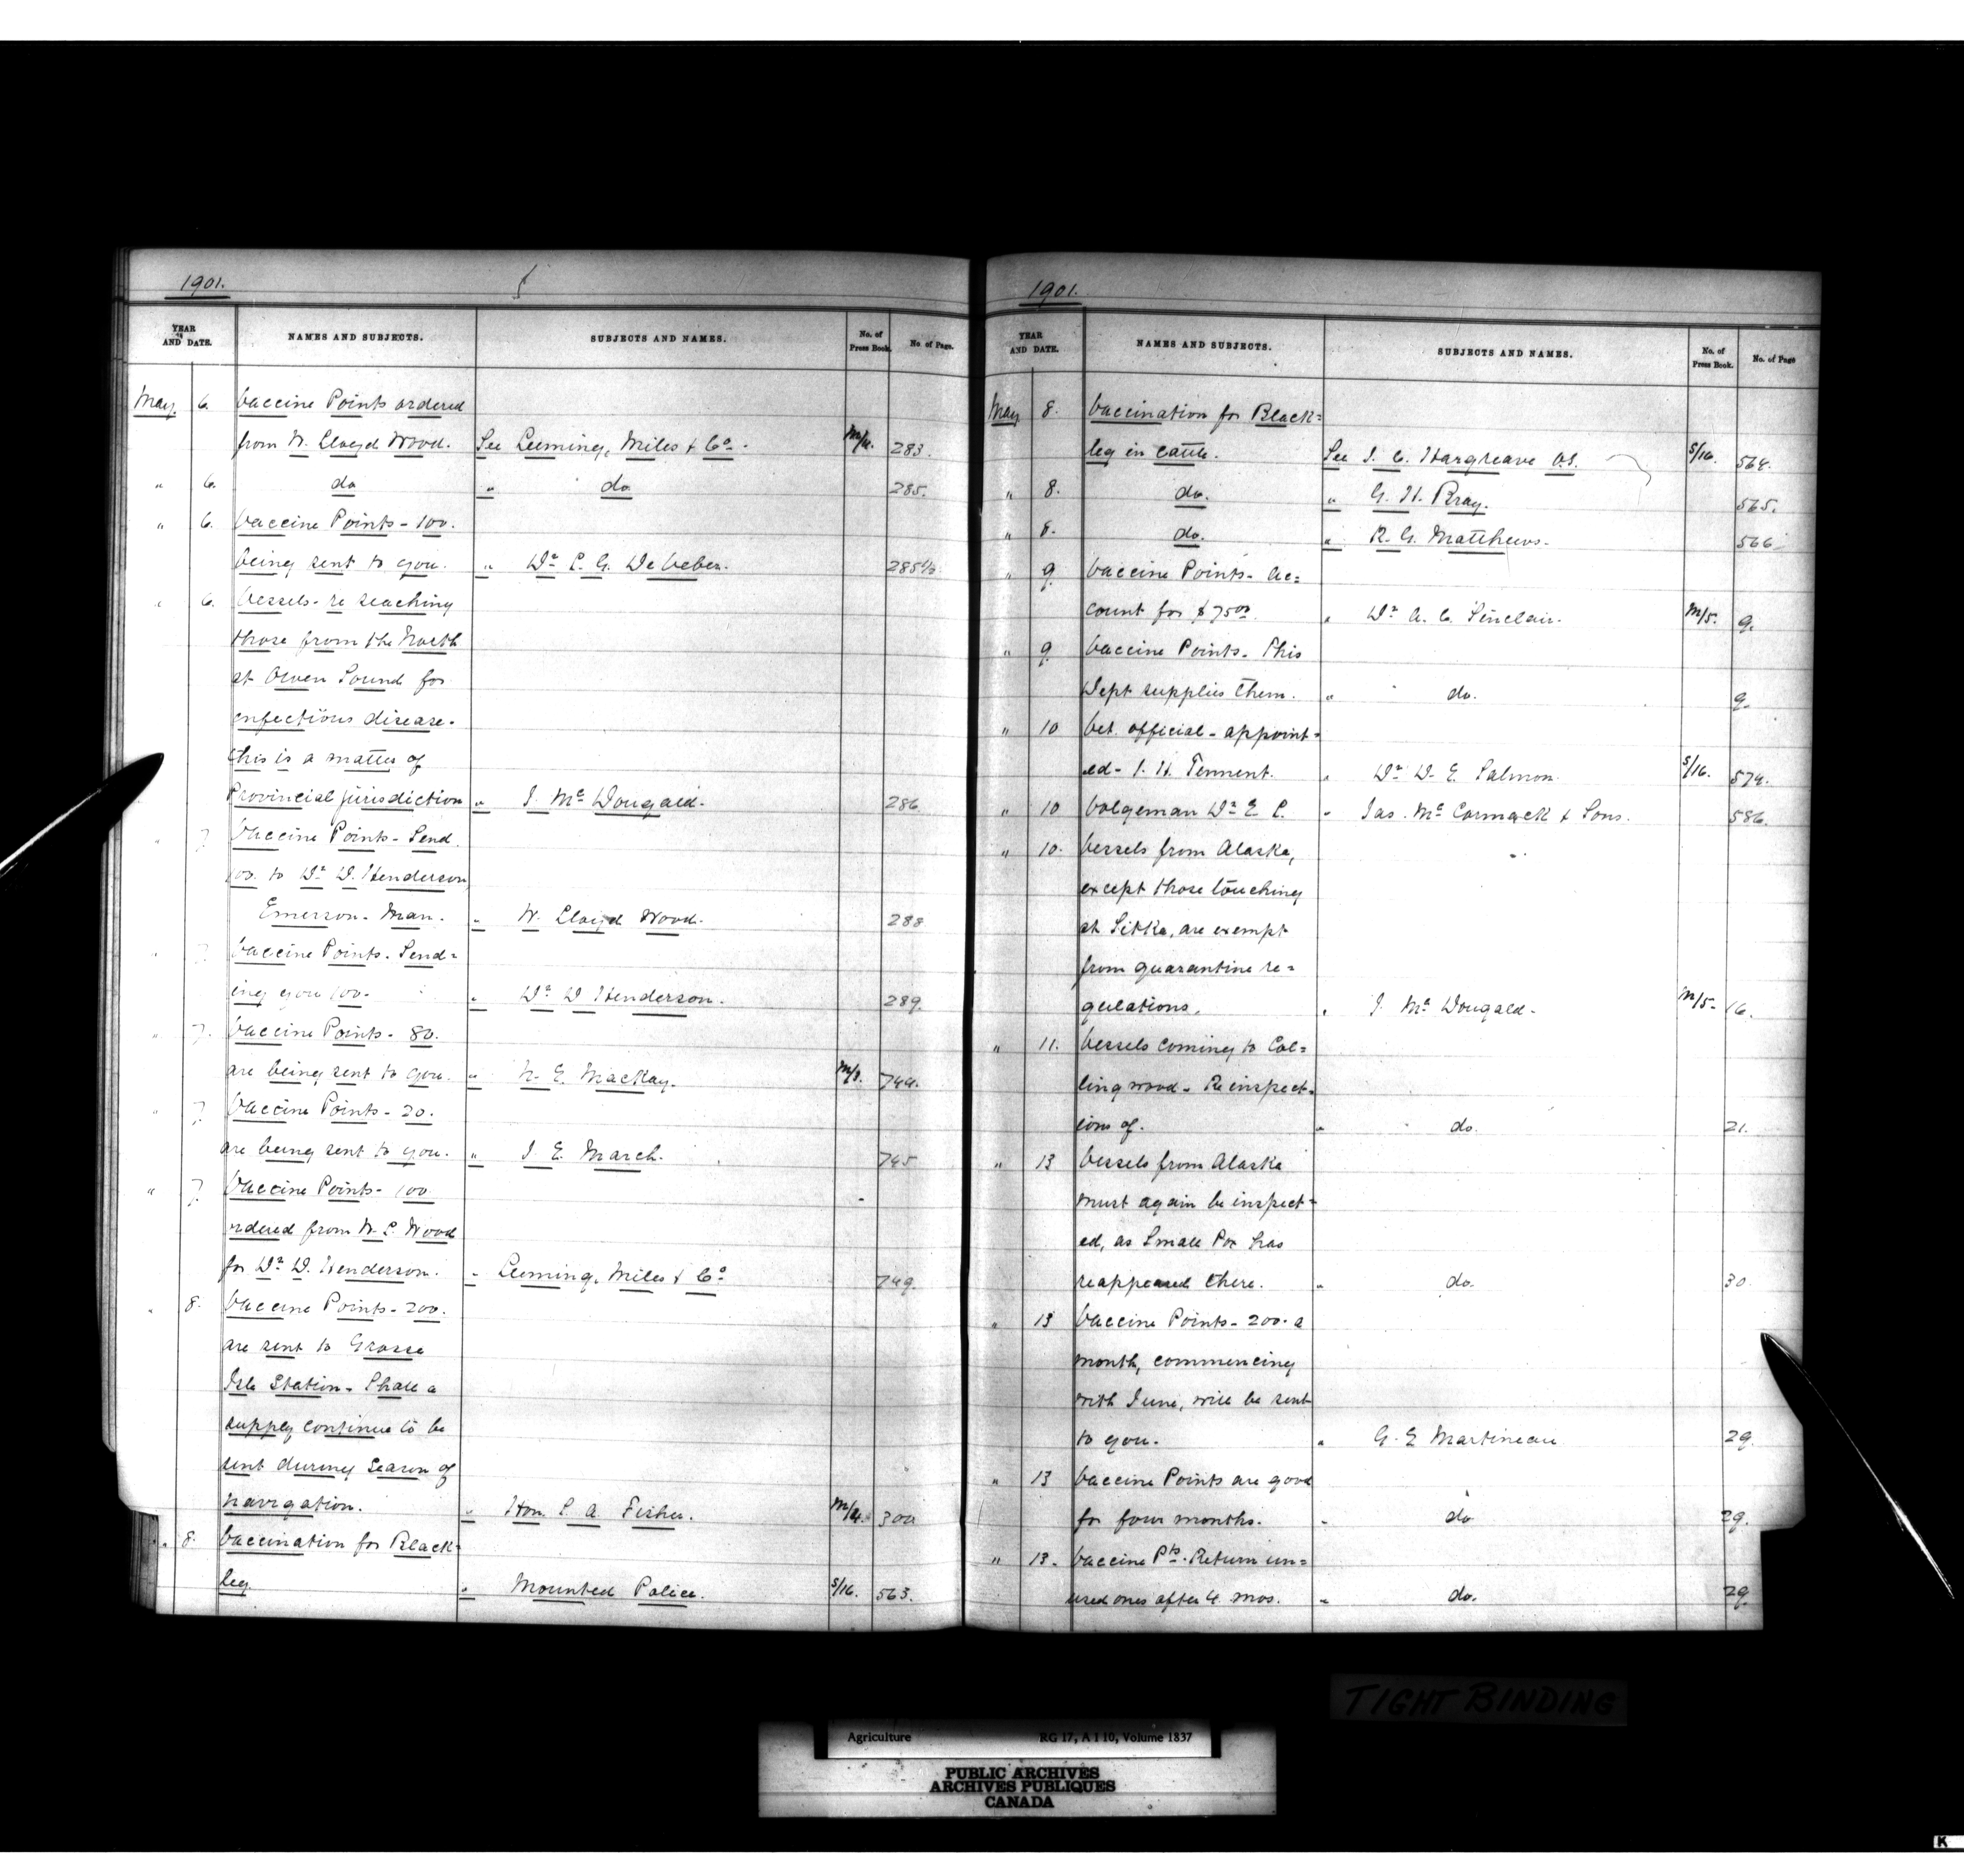 1901.
YEAR AND DATE. NAMES AND SUBJECTS. SUBJECTS AND NAMES. No. of Press Book. No. of Page.
May. 6. Vaccine Points ordered
from W. Lloyd Wood. See Leeming, Miles & Co. M/4. 283.
" 6. do " do 285.
" 6. Vaccine Points - 100.
being sent to you. " Dr L. G. De Veber. 285½
" 6. Vessels - re
those from the North
at Owen Sound for
infectious disease.
this is a matter of
Provincial jurisdiction " J. McDougald. 286
" 7 Vaccine Points - Send
100. to Dr D. Henderson
Emerson - Man. " W. Lloyd Wood. 288
" 7 Vaccine Points. Send=
ing you 100. " Dr D Henderson. 289.
" 7. Vaccine Points - 80.
are being sent to you. " N. E. MacKay. 744.
" 7. Vaccine Points - 20.
are being sent to you. " J. E. March. 745
" 7. Vaccine Points - 100
ordered from W. L. Wood
for Dr D. Henderson. " Leeming, Miles & Co 749.
" 8. Vaccine Points - 200.
are sent to Grosse
Isle Station - Shall a
supply continue to be
sent during Season of
navigation. " Hon. S A. Fisher. M/4. 300
" 8. Vaccination for Black=
leg. " Mounted Police. S/16. 563.
1901.
YEAR AND DATE. NAMES AND SUBJECTS. SUBJECTS AND NAMES. No. of Press Book. No. of Page
May 8. Vaccination for Black=
leg in cattle. See J. C. Hargreave V.S. S/16. 564.
" 8. do. " G. H. Bray. 565.
" 8. do. " R. G. Matthews. 566
" 9 Vaccine Points - Ac=
count for $7500. " Dr A. C. Sinclair. M/5. 9.
" 9 Vaccine Points. This
Dept supplies them. " do. 9.
" 10 Vet. official - appoint=
ed - J. H. Tennent. " Dr D. E. Salmon. S/16. 574.
" 10 Volgeman Dr E. C. " Jas. McCormack & Sons. 586.
" 10. Vessels from Alaska,
except those touching
at Sitka, are exempt
from quarantine re=
gulations. " J. McDougald. M/5. 16.
" 11. Vessels coming to Col=
lingwood - Re inspect=
ions of. " do. 21.
" 13 Vessels from Alaska
must again be inspect=
ed, as Small Pox has
reappeared there. " do. 30.
" 13 Vaccine Points - 200 a
month, commencing
with June, will be sent
to you. " G. E Martineau 29.
" 13 Vaccine Points are good
for four months. " do 29.
" 13. Vaccine Pts. Return un=
used ones after 4. mos. " do. 29.
TIGHT BINDING
Agriculture RG 17, A I 10, Volume 1837
PUBLIC ARCHIVES
ARCHIVES PUBLIQUES
CANADA
K